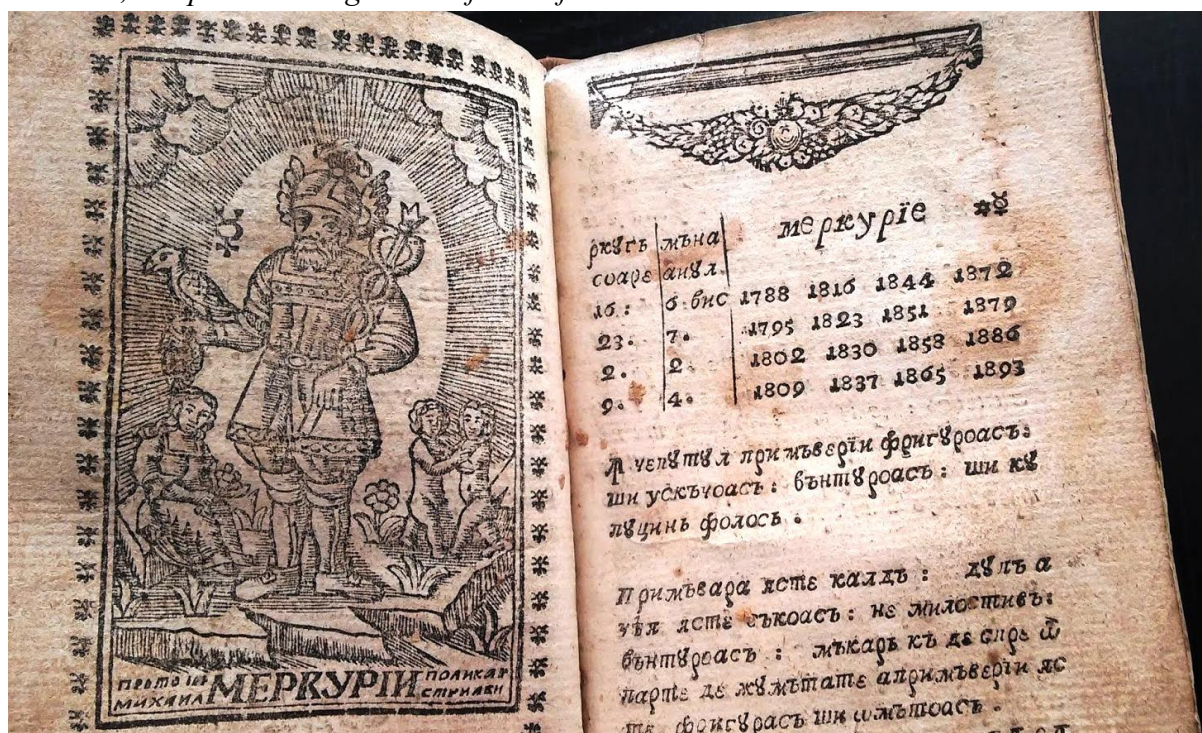 МИХАИЛ МЕРКУРІИ ПОЛИКАР
меркурїе ☿
ркꙋгъ мъна
соаре анꙋл.
16: 6. бис 1788 1816 1844 1872
23. 7. 1795 1823 1851 1879
2. 2. 1802 1830 1858 1886
9. 4. 1809 1837 1865 1893
Ꙟчепꙋтꙋл примъверїи фригꙋроасъ:
ши ускъчоасъ: вънтꙋроасъ: ши кꙋ
пꙋцинь фолось.
Примъвара ꙗсте калдъ: дꙋпъ а
чѣꙗ ꙗсте съкоасъ: не милостивъ:
вънтꙋроасъ: мъкарь къ де спре ѿ
парте де жꙋмътате апримъверїи ꙗс
те фригꙋрасъ ши ѡмътоасъ.